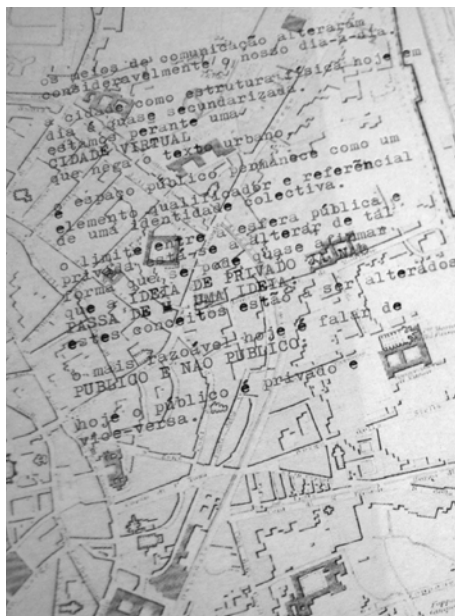 os meios de comunicação alteraram
consideravelmente o nosso dia-a-dia.
a cidade como estrutura física hoje em
dia é quase secundarizada.
estamos perante uma
CIDADE VIRTUAL
que nega o texto urbano.
o espaço público permanece como um
elemento qualificador e referêncial
de uma identidade colectiva.
o limite entre a esfera pública e
privada está-se a alterar de tal
forma que se pode quase afirmar
que a IDEIA DE PRIVADO
PASSA DE UMA IDEIA.
estes conceitos estão a ser alterados
o mais razoável hoje é falar de
PUBLICO E NÃO PUBLICO.
hoje o público é privado e
vice-versa.